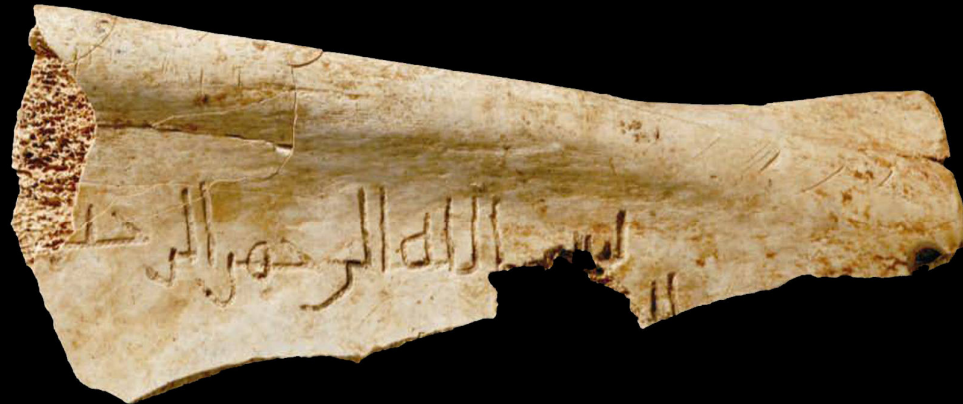 بسم الله الرحمن الرحـ
ا